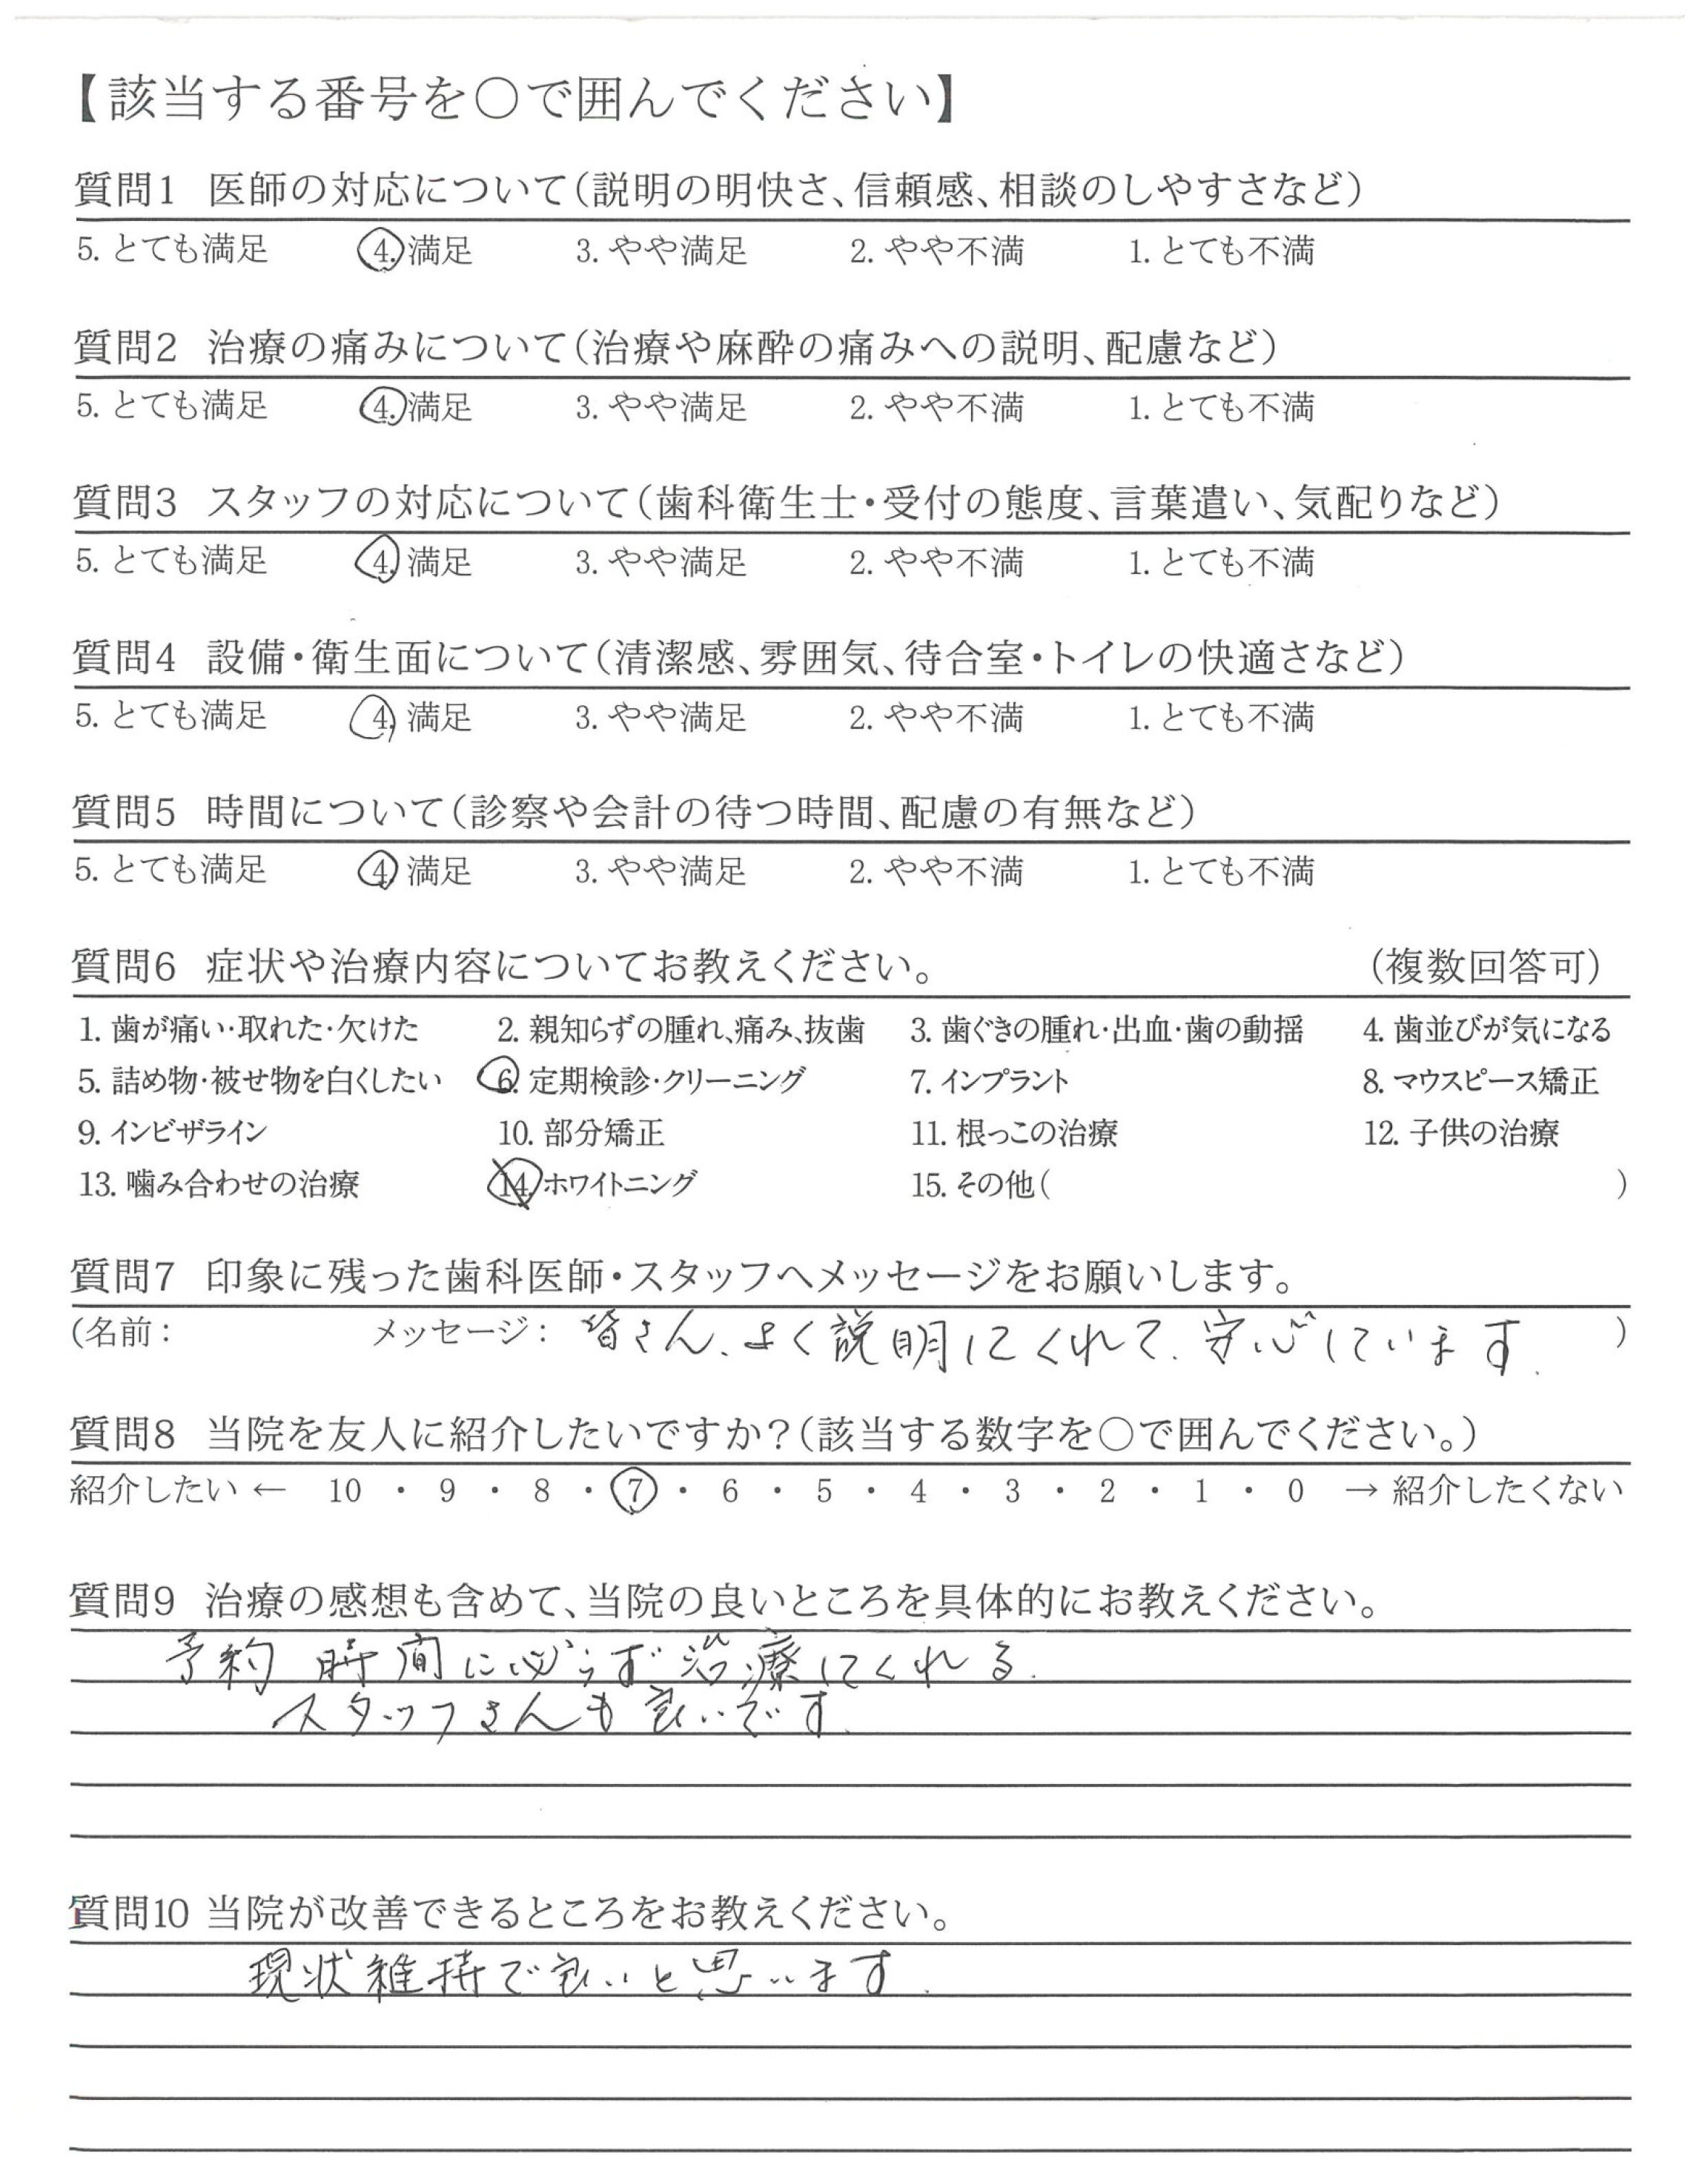 【該当する番号を〇で囲んでください】
質問1 医師の対応について(説明の明快さ、信頼感、相談のしやすさなど)
5. とても満足 4. 満足 3. やや満足 2. やや不満 1. とても不満
質問2 治療の痛みについて(治療や麻酔の痛みへの説明、配慮など)
5. とても満足 4. 満足 3. やや満足 2. やや不満 1. とても不満
質問3 スタッフの対応について(歯科衛生士・受付の態度、言葉遣い、気配りなど)
5. とても満足 4. 満足 3. やや満足 2. やや不満 1. とても不満
質問4 設備・衛生面について(清潔感、雰囲気、待合室・トイレの快適さなど)
5. とても満足 4. 満足 3. やや満足 2. やや不満 1. とても不満
質問5 時間について(診察や会計の待つ時間、配慮の有無など)
5. とても満足 4. 満足 3. やや満足 2. やや不満 1. とても不満
質問6 症状や治療内容についてお教えください。 (複数回答可)
1. 歯が痛い・取れた・欠けた 2. 親知らずの腫れ、痛み、抜歯 3. 歯ぐきの腫れ・出血・歯の動揺 4. 歯並びが気になる
5. 詰め物・被せ物を白くしたい 6. 定期検診・クリーニング 7. インプラント 8. マウスピース矯正
9. インビザライン 10. 部分矯正 11. 根っこの治療 12. 子供の治療
13. 噛み合わせの治療 14. ホワイトニング 15. その他( )
質問7 印象に残った歯科医師・スタッフへメッセージをお願いします。
(名前: メッセージ: 皆さん、よく説明してくれて、安心しています. )
質問8 当院を友人に紹介したいですか?(該当する数字を〇で囲んでください。)
紹介したい ← 10 ・ 9 ・ 8 ・ 7 ・ 6 ・ 5 ・ 4 ・ 3 ・ 2 ・ 1 ・ 0 → 紹介したくない
質問9 治療の感想も含めて、当院の良いところを具体的にお教えください。
予約時間に必らず治療してくれる.
スタッフさんも良いです.
質問10 当院が改善できるところをお教えください。
現状維持で良いと思います.